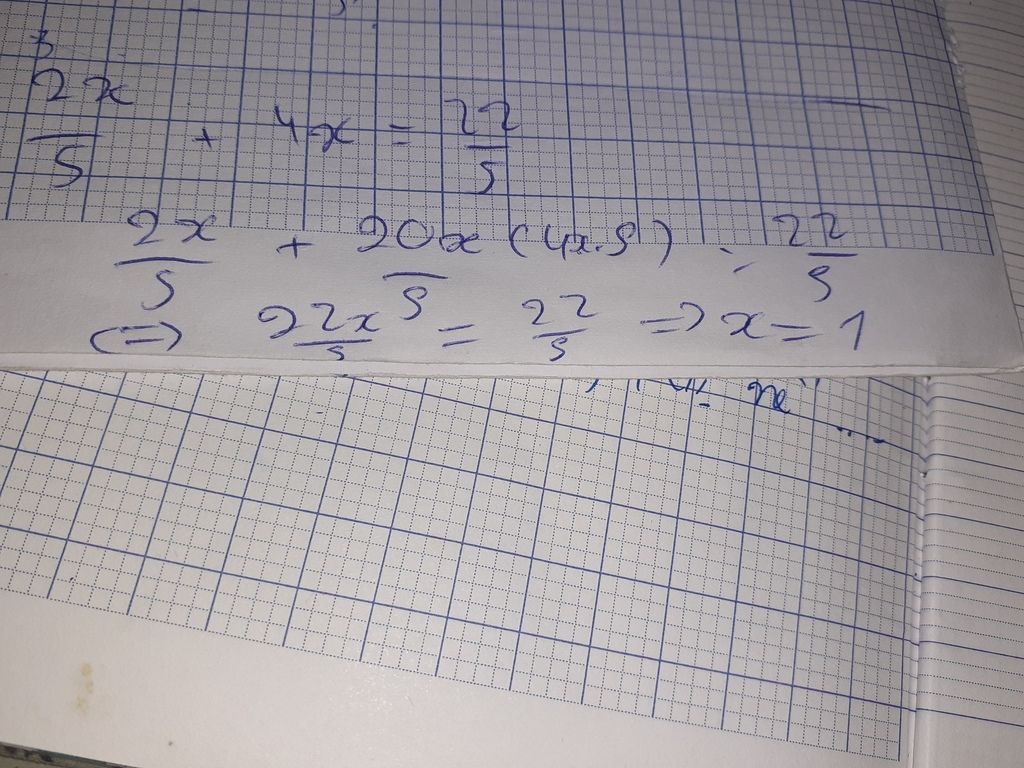 2x/5 + 4x = 22/5
2x/5 + 20x/5 (4x.5) = 22/5
<=> 22x/5 = 22/5 => x = 1